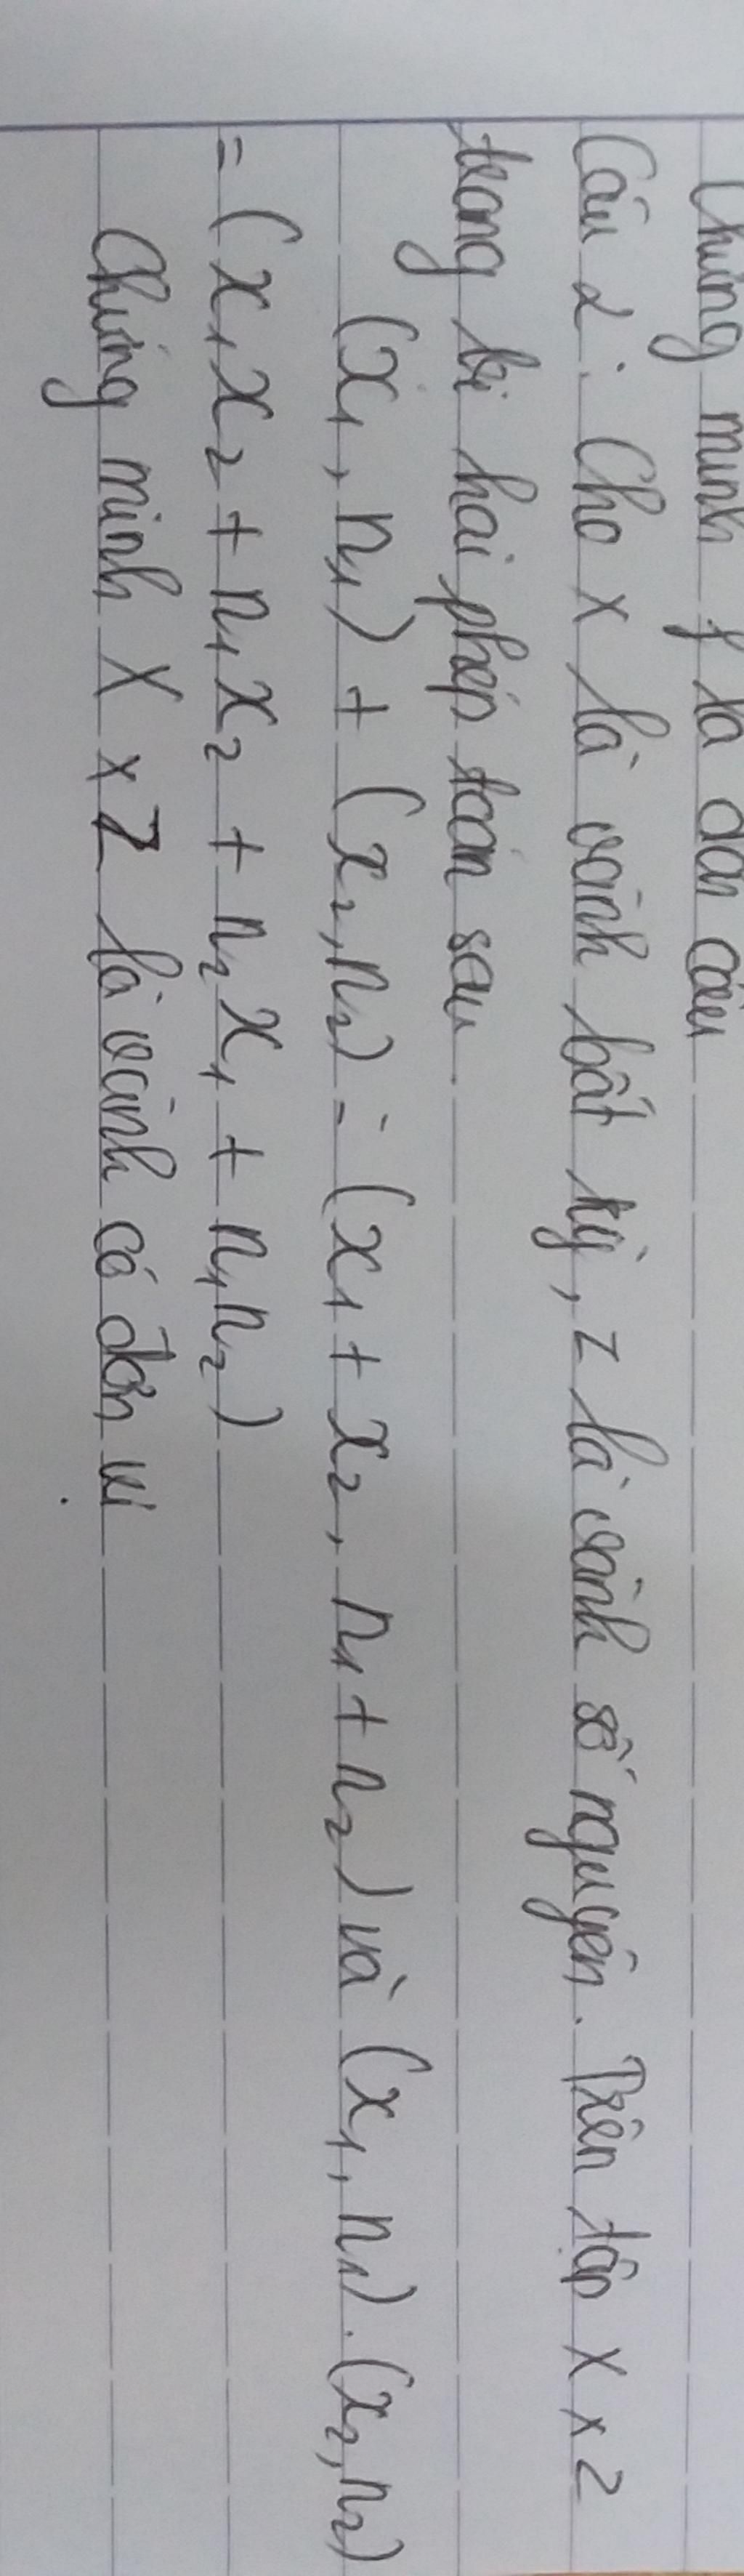 Chứng minh f là đơn cấu
Câu 2: Cho X là vành bất kỳ, Z là vành số nguyên. Trên tập X x Z
trang bị hai phép toán sau.
(x₁, n₁) + (x₂, n₂) = (x₁ + x₂, n₁ + n₂) và (x₁, n₁).(x₂, n₂)
= (x₁x₂ + n₁x₂ + n₂x₁ + n₁n₂)
Chứng minh X x Z là vành có đơn vị